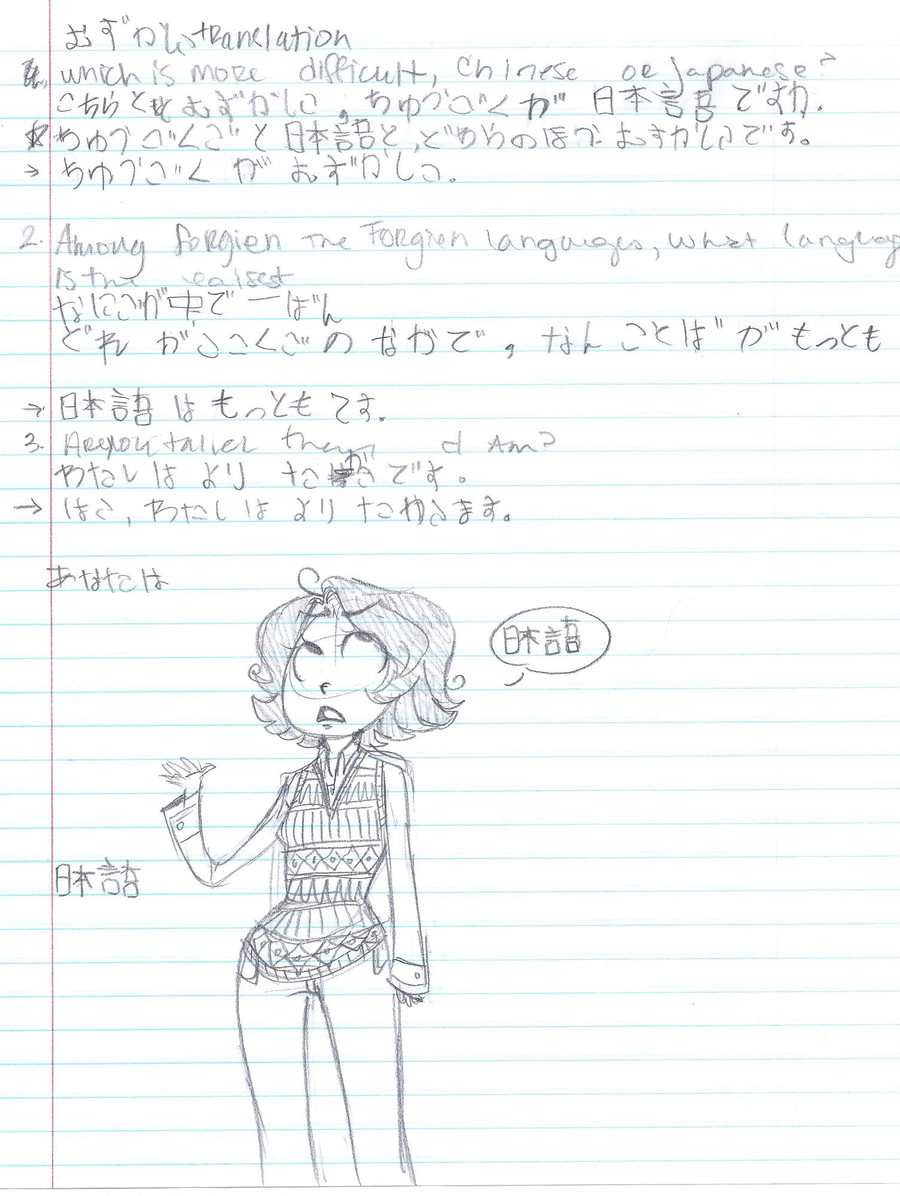 むずかしい translation
which is more difficult, Chinese or Japanese?
こちらと むずかしい, ちゅうごくが 日本言語ですか.
ちゅうごくごと日本語と, どちらのほが むずかしいです。
→ ちゅうごくが むずかしい.
2. Among forgien the Forgien languages, what language
is the eaisest
なにごが中で 一ばん
どれ がいこくごの なかで, なん ことば が もっとも
→ 日本語 は もっとも です.
3. Are you taller than I Am?
わたしは より たかいです。
→ はい, わたしは より たかいます。
あなたは
日本語
日本語